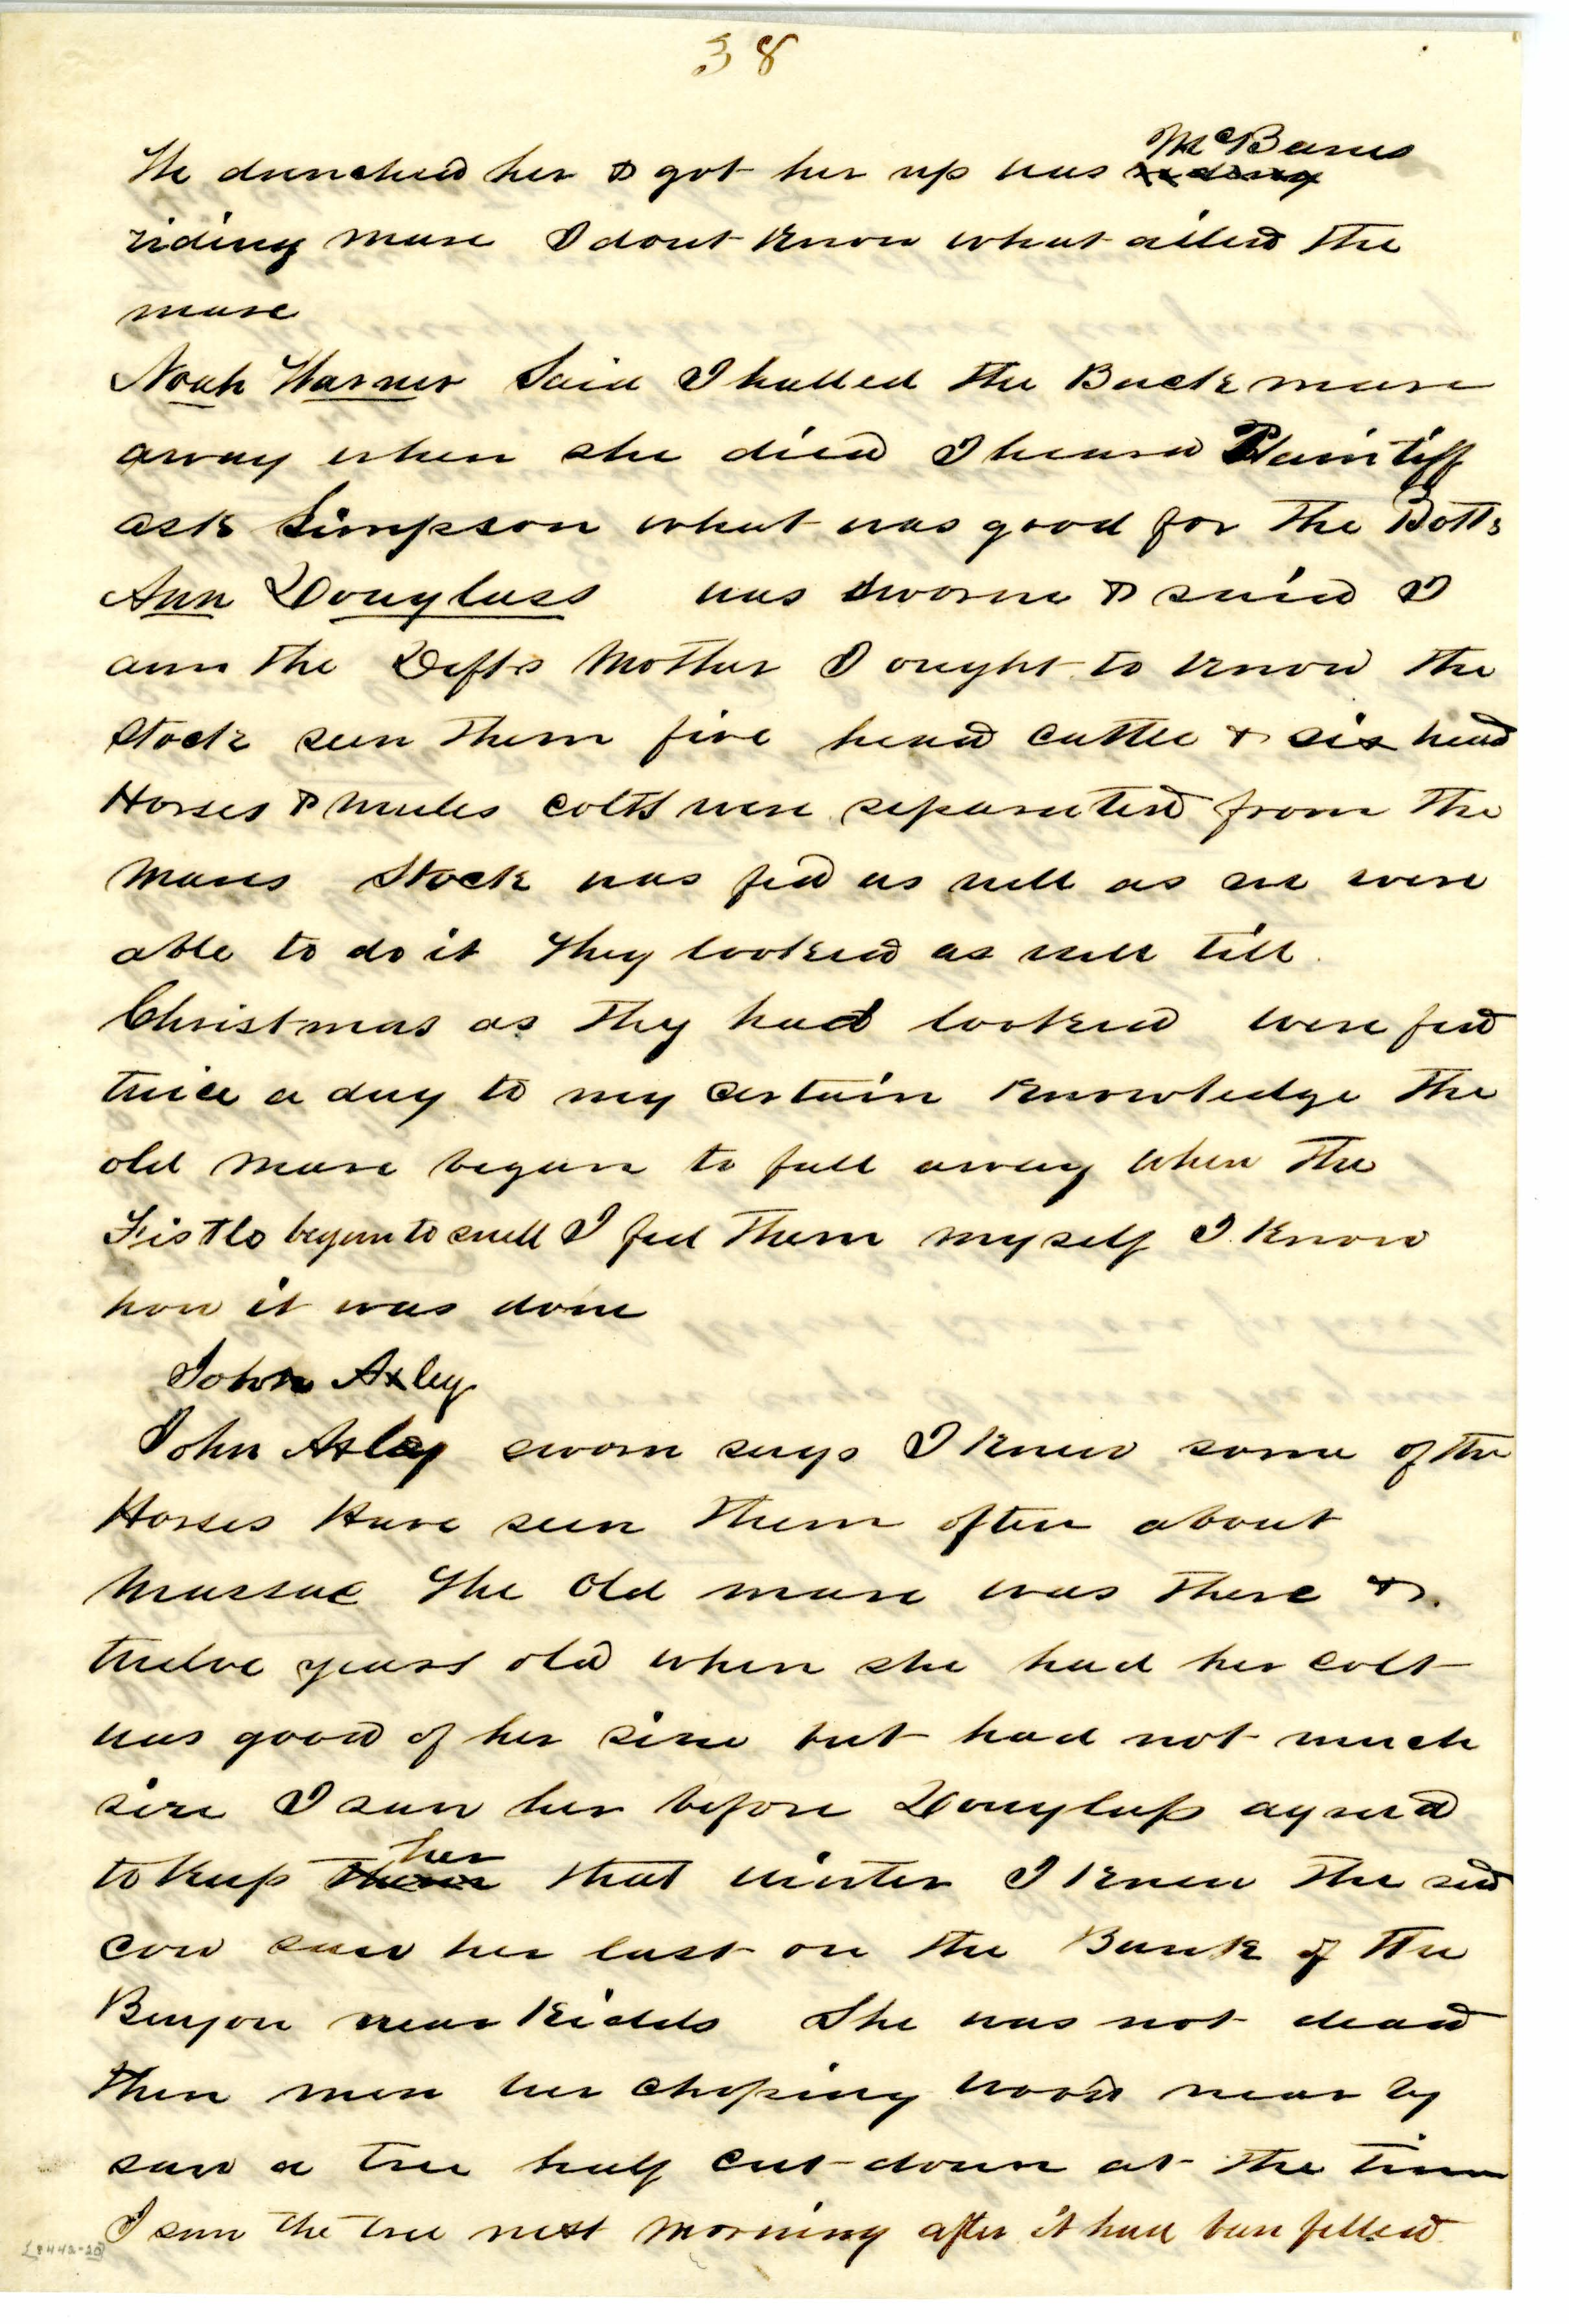 38
He drenched her & got her up was ~~riding~~ McBanes
riding mare I dont know what ailed the
mare
Noah Harner Said I halled the Buck mare
away when she died I heard Plaintiff
ask Simpson what was good for the Botts
Ann Douglass was sworn & said I
am the Defts Mother I ought to know the
stock seen them five head cattle & six head
Horses & mules colts were separated from the
Mares Stock was fed as well as we were
able to do it They looked as well till
Christmas as they had looked were fed
twice a day to my certain knowledge the
old mare began to fall away when the
Fistlo began to swell I fed them myself I know
how it was done
John Axley
John Axley sworn says I knew some of the
Horses Have seen them often about
Massac The old mare was there &
twelve years old when she had her colt
was good of her size but had not much
size I saw her before Douglass agreed
to keep ~~them~~ her that winter I knew the red
cow saw her last on the Bank of the
Bayou near Kidds She was not dead
then men wer choping wood near by
saw a tree half cut down at the time
I saw the tree next morning after it had been felled
L8442-20